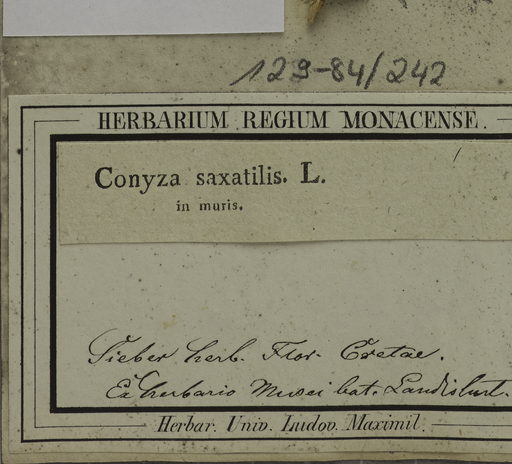 129-84/242
HERBARIUM REGIUM MONACENSE.
Conyza saxatilis. L.
in muris.
Sieber herb. Flor. Cretae.
Ex herbario Musei bot. Landishut.
Herbar. Univ. Ludov. Maximil.